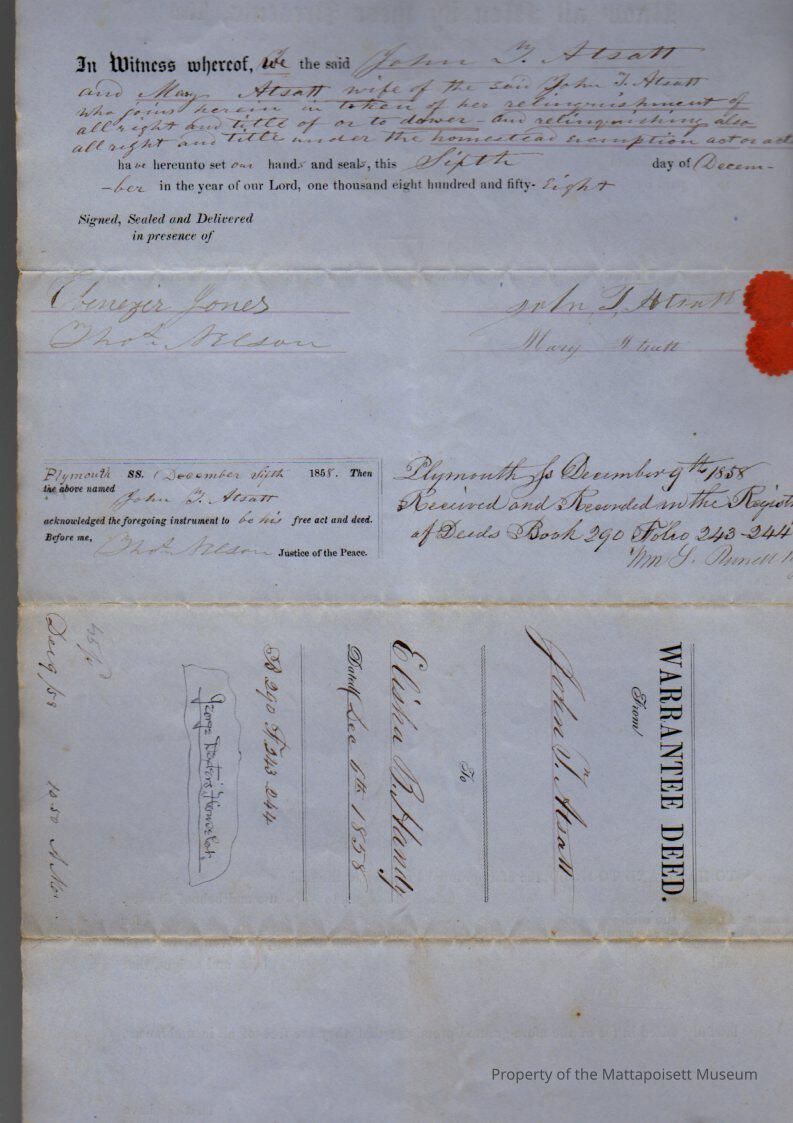 In Witness whereof, We the said John T. Atsatt
and Mary Atsatt wife of the said John T. Atsatt
who joins herein in token of her relinquishment of
all right and title of or to dower - and relinquishing also
all right and title under the homestead exemption act or act
have hereunto set our hands and seals, this Sixth day of Decem-
-ber in the year of our Lord, one thousand eight hundred and fifty-Eight
Signed, Sealed and Delivered
in presence of
Ebenezer Jones
Thos. Nelson
John T. Atsatt
Mary Atsatt
Plymouth SS. December sixth 1858. Then
the above named
John T. Atsatt
acknowledged the foregoing instrument to be his free act and deed.
Before me,
Thos. Nelson Justice of the Peace.
Plymouth Ss December 9th 1858
Received and Recorded in the Regist
of Deeds Book 290 Folio 243-244
Wm S. Russell
WARRANTEE DEED.
From
John T. Atsatt
To
Elisha B. Handy
Dated Dec 6th 1858
B 290 F 243-244
George
Dec 9/58 10.50 A
Property of the Mattapoisett Museum